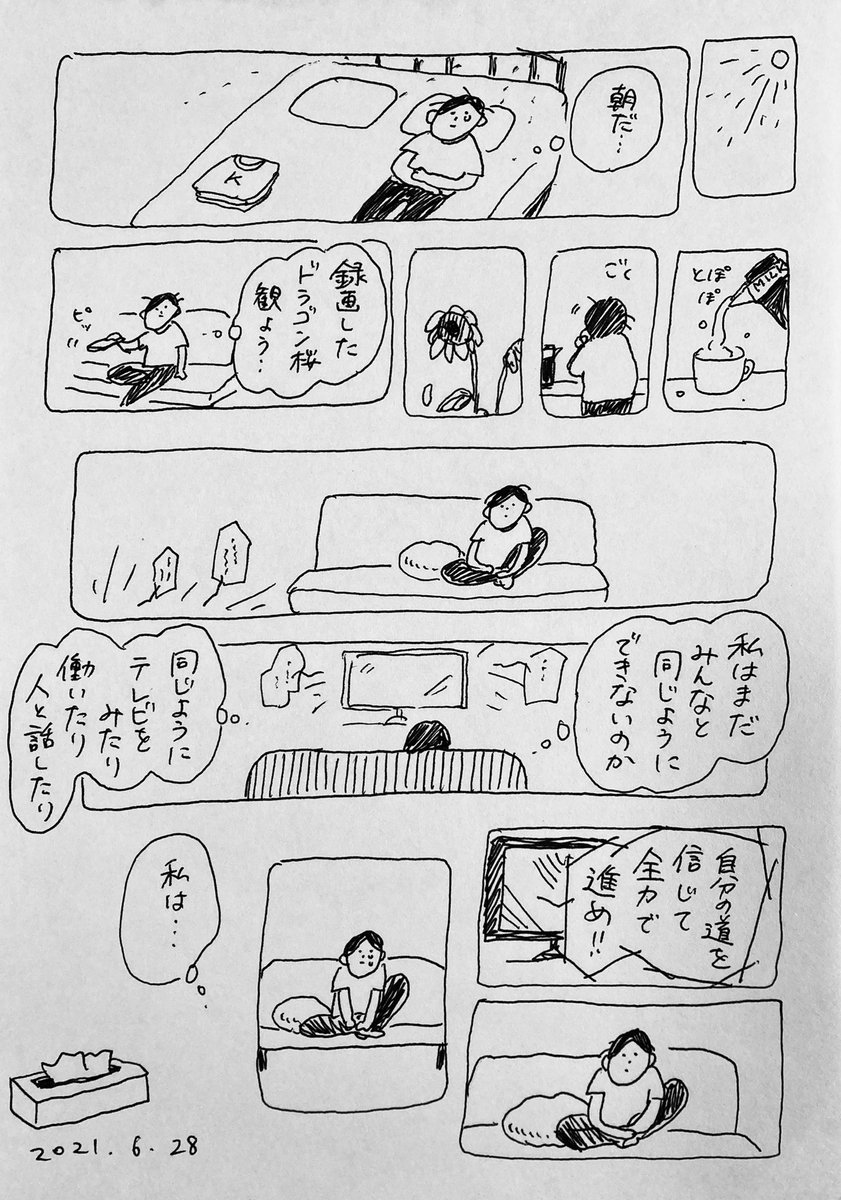 朝だ…
K
MILK
とぽ
ぽ
ごく
録画した
ドラゴン桜
観よう…
ピッ
私はまだ
みんなと
同じように
できないのか
同じように
テレビを
みたり
働いたり
人と話したり
自分の道を
信じて
全力で
進め!!
私は…
2021.6.28